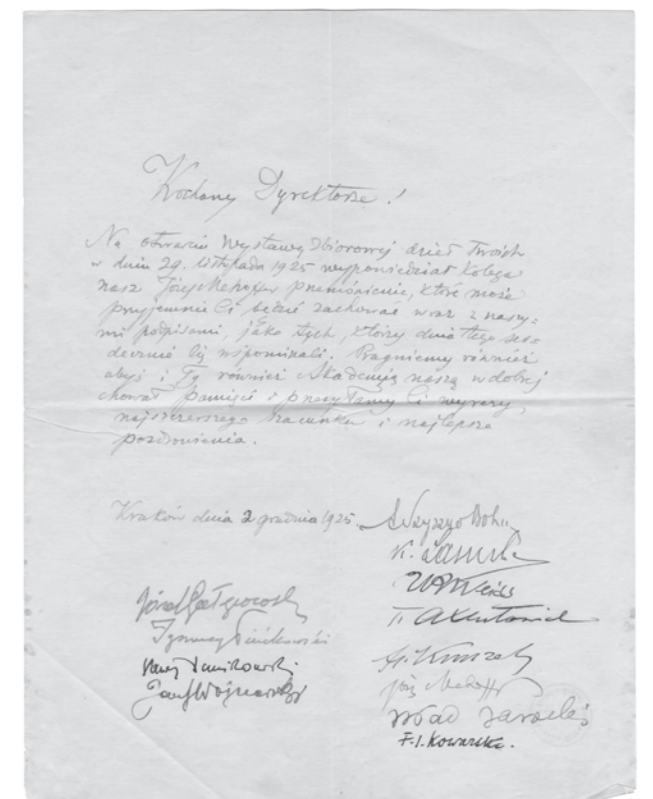 Kochany Dyrektorze!
Na otwarciu Wystawy Zbiorowej dzieł Twoich
w dniu 29. listopada 1925 wypowiedział Kolega
nasz Józef Mehoffer przemówienie, które może
przyjemnie Ci będzie zachować wraz z naszy-
mi podpisami, jako tych, którzy dnia tego ser-
decznie Cię wspominali. Pragniemy również
abyś i Ty również Akademię naszą w dobrej
chował pamięci i przesyłamy Ci wyrazy
najszczerszego szacunku i najlepsze
pozdrowienia.
Kraków dnia 2 grudnia 1925.
A. Szyszko Boh
K. Laszczka
W. Weiss
T. Axentowicz
Józef Gałęzowski
Ignacy Pieńkowski
Jan Wojnarski
Józ Mehoffer
Wład Jarocki
F. S. Kowarski.